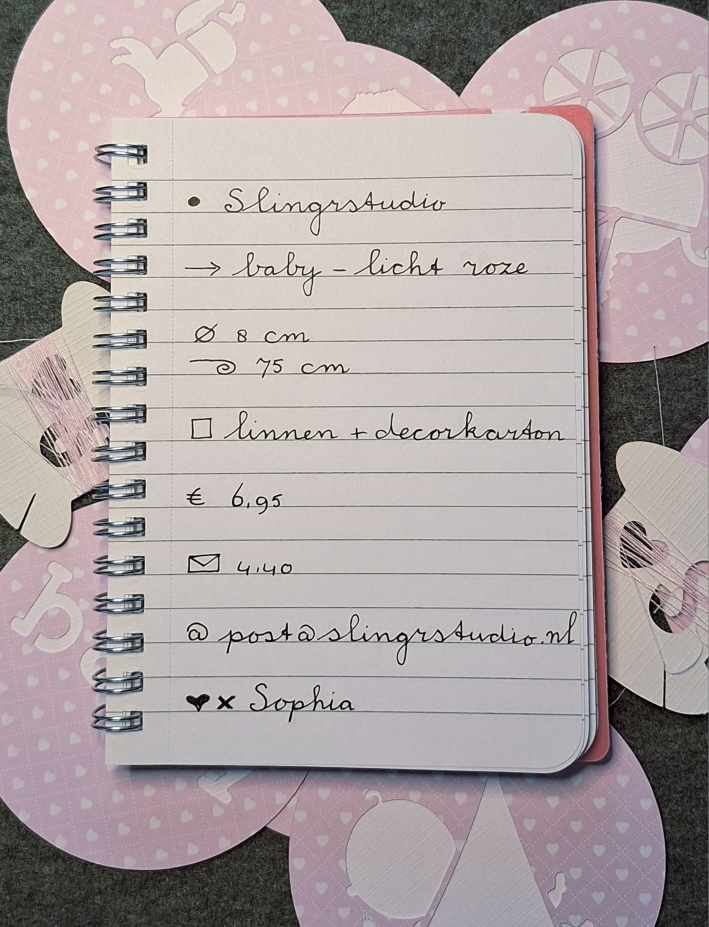 • Slingrstudio
→ baby - licht roze
Ø 8 cm
75 cm
□ linnen + decorkarton
€ 6,95
✉ 4,40
@ post@slingrstudio.nl
♥× Sophia